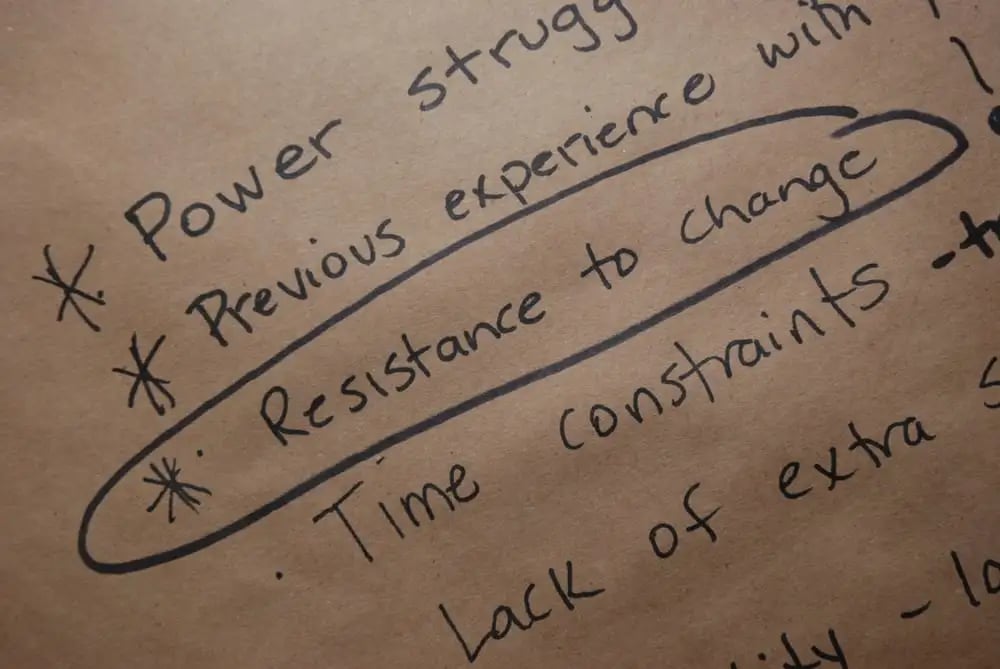 * Power
* Previous experience with
* · Resistance to change
· Time constraints -
Lack of extra